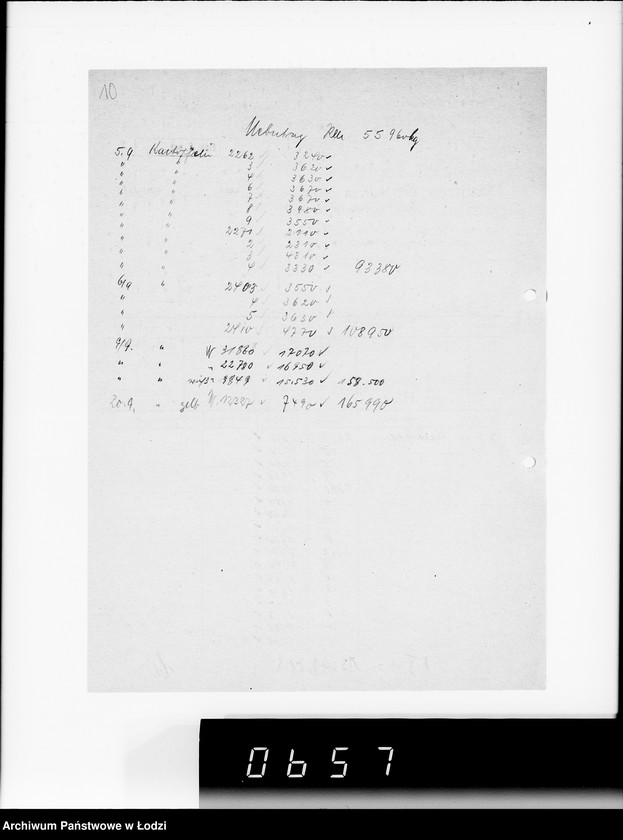 10
Uebertrag Kilo 55.960 kg
5.9. Kartoffeln 2262 3240 ✓
" " 3 3620 ✓
" " 4 3630 ✓
" " 6 3670 ✓
" " 7 3670 ✓
" " 8 3980 ✓
" " 9 3550 ✓
" " 2271 2110 ✓
" " 2 2310 ✓
" " 3 4310 ✓
" " 4 3330 ✓ 93380
6/9 " 2408 3550 ✓
" 4 3620 ✓
" 5 3630 ✓
" 2410 4770 ✓ 108950
9/9. " W 31860 ✓ 17070 ✓
" " " 22700 ✓ 16950 ✓
" " 9849 ✓ 15530 ✓ 158.500
20.9. " gelb W. 12327 ✓ 7490 ✓ 165990
0657
Archiwum Państwowe w Łodzi